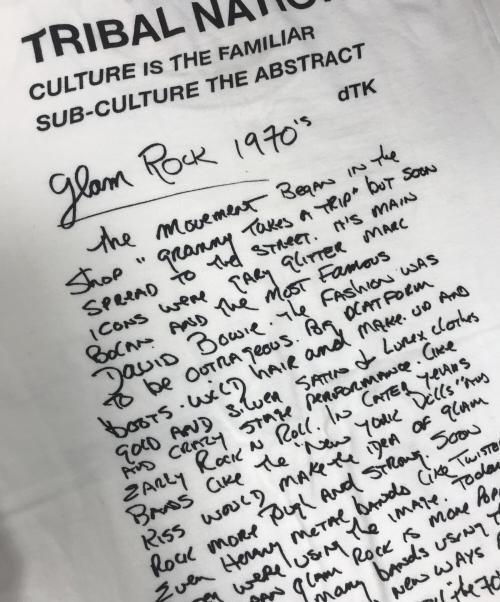 TRIBAL NATIO
CULTURE IS THE FAMILIAR
SUB-CULTURE THE ABSTRACT
dTK
Glam Rock 1970's
the movement Began in the
Shop "granny Takes A TRIP" but soon
SPREAD TO the STREET. It's MAIN
iCONS were GARY GLITTER MARC
BOLAN AND the MOST FAMOUS
DAVID BOWIE. The FASHION WAS
to be OUTRAGEOUS. Big PLATFORM
boots. WILD HAIR and MAKE.UP AND
GOLD AND SILVER SATIN & LUREX clothes
AND CRAZY STAGE PERFORMANCE. LIKE
EARLY ROCK N ROLL. IN LATER YEARS
BANDS LIKE the "NEW YORK DOLLS" AND
KISS WOULD MAKE the IDEA OF GLAM
ROCK MORE TOUGH AND STRONG. SOON
EVEN HEAVY METAL bands LIKE TWISTED
were USING the IMAGE. TODAY
GLAM ROCK IS MORE
MANY bands USING
NEW WAYS
the 70